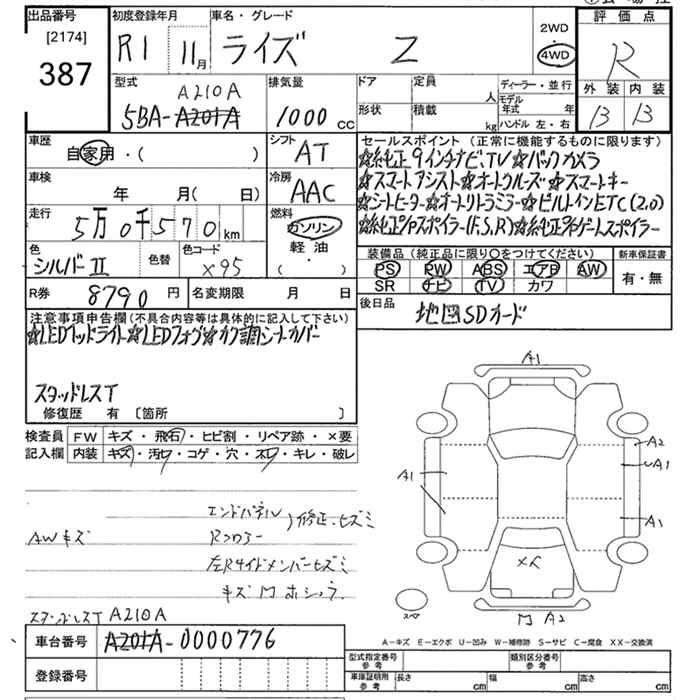 出品番号 初度登録年月 車名・グレード 評価点
[2174]
387
R1 11月 ライズ Z
2WD
4WD
R
型式 排気量 ドア 定員 人 ディーラー・並行 外装 内装
A210A
5BA-A201A 1000cc
形状 積載 kg モデル年式 年
ハンドル 左・右
B B
車歴 自家用・( )
シフト AT
セールスポイント (正常に機能するものに限ります)
☆純正9インチナビ、TV☆バックカメラ
☆スマートアシスト☆オートクルーズ☆スマートキー
☆シートヒーター☆オートリトラミラー☆ビルトインETC(2.0)
☆純正エアロスポイラー(F,S,R)☆純正リヤゲートスポイラー
車検 年 月( 日)
冷房 AAC
走行 5万0千570km
燃料 ガソリン
軽油
( )
色 シルバーⅡ 色替 色コード X95
装備品 (純正品に限り○をつけてください) 新車保証書
PS PW ABS エアB AW
SR ナビ TV カワ
有・無
R券 8790円 名変期限 月 日
後日品 地図SDカード
注意事項申告欄(不具合内容等は具体的に記入して下さい)
☆LEDヘッドライト☆LEDフォグ☆カワ調シートカバー
スタッドレスT
修復歴 有 〔箇所 〕
検査員 FW キズ・飛石・ヒビ割・リペア跡・×要
記入欄 内装 キズ・汚レ・コゲ・穴・ネジ・キレ・破レ
エンドパネル
Rフロアー
)修正、ヒズミ
AWキズ
左Rサイドメンバーヒズミ
キズ凹ホシュウ
スタッドレスT A210A
車台番号 A201A-0000776
登録番号
A1
A2
A1
A1
A1
メ人
スペア
凹 A2
A-キズ E-エクボ U-凹み W-補修跡 S-サビ C-腐食 XX-交換済
型式指定番号 参考 類別区分番号 参考
車庫証明用 参考 長さ cm 幅 cm 高さ cm